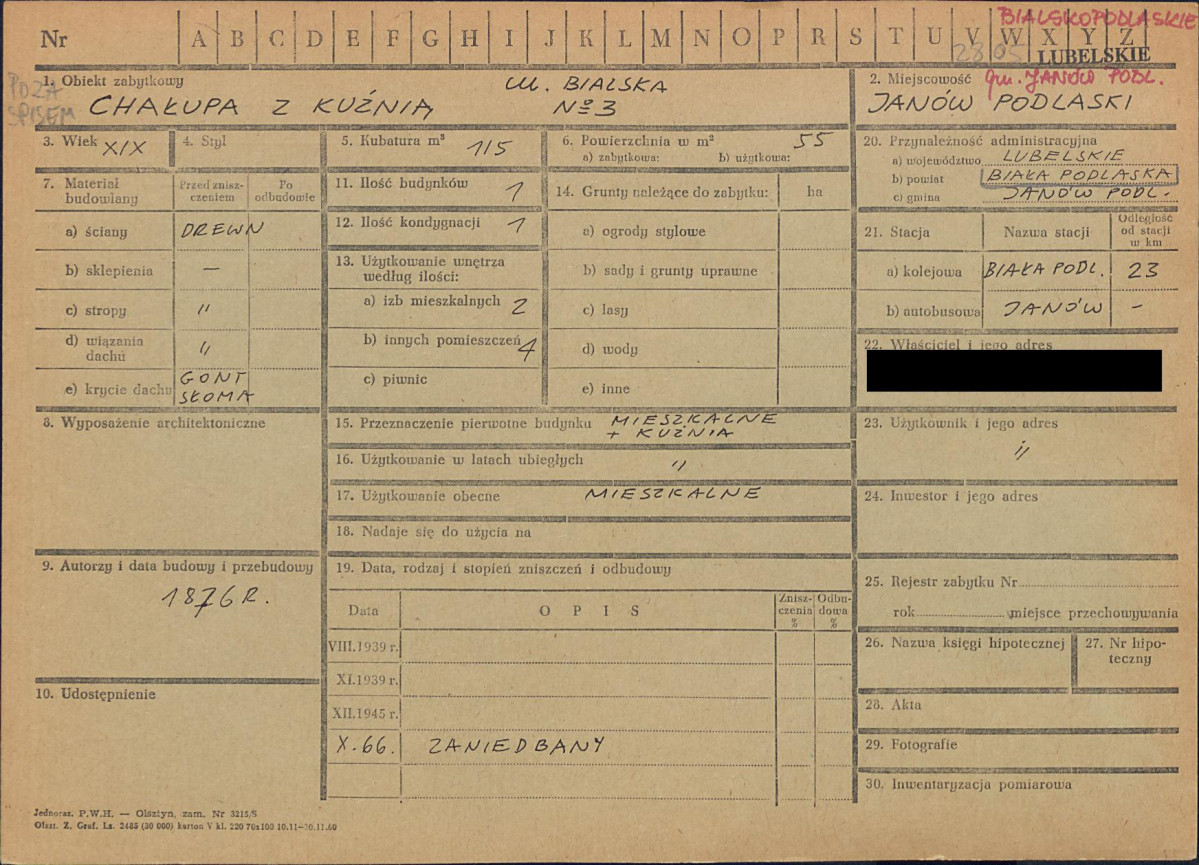 BIALSKOPODLASKIE
Nr A B C D E F G H I J K L M N O P R S T U V W X Y Z
2805 LUBELSKIE
POZA SPISEM
1. Obiekt zabytkowy ul. BIALSKA
CHAŁUPA Z KUŹNIĄ Nº 3
2. Miejscowość gm. JANÓW PODL.
JANÓW PODLASKI
3. Wiek XIX
4. Styl
5. Kubatura m³ 115
6. Powierzchnia w m² 55
a) zabytkowa: b) użytkowa:
7. Materiał budowlany
Przed zniszczeniem
Po odbudowie
a) ściany DREWN
b) sklepienia —
c) stropy "
d) wiązania dachu "
e) krycie dachu GONT SŁOMA
8. Wyposażenie architektoniczne
9. Autorzy i data budowy i przebudowy
1876 R.
10. Udostępnienie
11. Ilość budynków 1
12. Ilość kondygnacji 1
13. Użytkowanie wnętrza według ilości:
a) izb mieszkalnych 2
b) innych pomieszczeń 4
c) piwnic
14. Grunty należące do zabytku: ha
a) ogrody stylowe
b) sady i grunty uprawne
c) lasy
d) wody
e) inne
15. Przeznaczenie pierwotne budynku MIESZKALNE + KUŹNIA
16. Użytkowanie w latach ubiegłych "
17. Użytkowanie obecne MIESZKALNE
18. Nadaje się do użycia na
19. Data, rodzaj i stopień zniszczeń i odbudowy
Data OPIS Zniszczenia % Odbudowa %
VIII.1939 r.
XI.1939 r.
XII.1945 r.
X.66. ZANIEDBANY
20. Przynależność administracyjna
a) województwo LUBELSKIE
b) powiat BIAŁA PODLASKA
c) gmina JANÓW PODL.
21. Stacja Nazwa stacji Odległość od stacji w km
a) kolejowa BIAŁA PODL. 23
b) autobusowa JANÓW -
22. Właściciel i jego adres
23. Użytkownik i jego adres
"
24. Inwestor i jego adres
25. Rejestr zabytku Nr
rok miejsce przechowywania
26. Nazwa księgi hipotecznej
27. Nr hipoteczny
28. Akta
29. Fotografie
30. Inwentaryzacja pomiarowa
Jednoraz. P.W.H. — Olsztyn, zam. Nr 3215/S
Olszt. Z. Graf. Lz. 2485 (30 000) karton V kl. 220 70x100 10.11—30.11.60